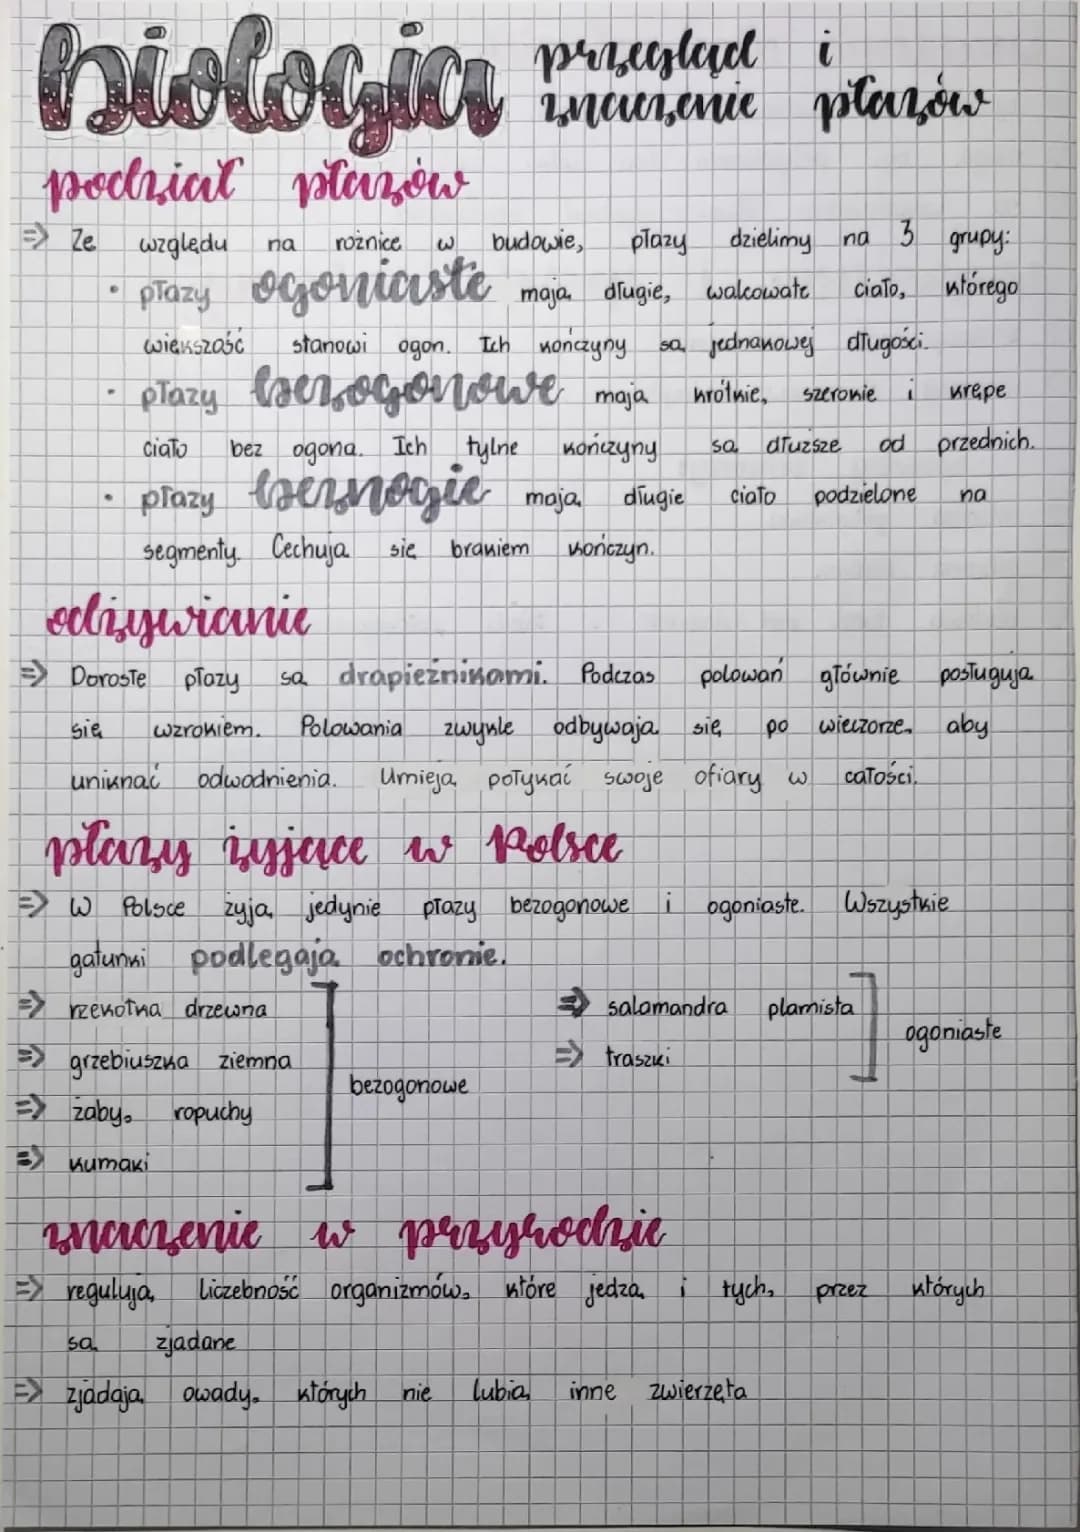 biologia przegląd i
znaczenie płazów
podział płazów
=> Ze względu na rożnice w budowie, płazy dzielimy na 3 grupy:
• płazy ogoniaste mają długie, walcowate ciało, którego
większość stanowi ogon. Ich kończyny są jednakowej długości.
• płazy bezogonowe mają krótkie, szerokie i krępe
ciało bez ogona. Ich tylne kończyny są dłuższe od przednich.
• płazy beznogie mają długie ciało podzielone na
segmenty. Cechują się brakiem kończyn.
odżywianie
=> Dorosłe płazy są drapieżnikami. Podczas polowań głównie posługują
się wzrokiem. Polowania zwykle odbywają się po wieczorze, aby
uniknąć odwodnienia. Umieją połykać swoje ofiary w całości.
płazy żyjące w Polsce
=> W Polsce żyją jedynie płazy bezogonowe i ogoniaste. Wszystkie
gatunki podlegają ochronie.
=> rzekotka drzewna
=> grzebiuszka ziemna
=> żaby, ropuchy
=> kumaki
bezogonowe
=> salamandra plamista
=> traszki
ogoniaste
znaczenie w przyrodzie
=> regulują liczebność organizmów, które jedzą i tych, przez których
są zjadane
=> zjadają owady, których nie lubią inne zwierzęta